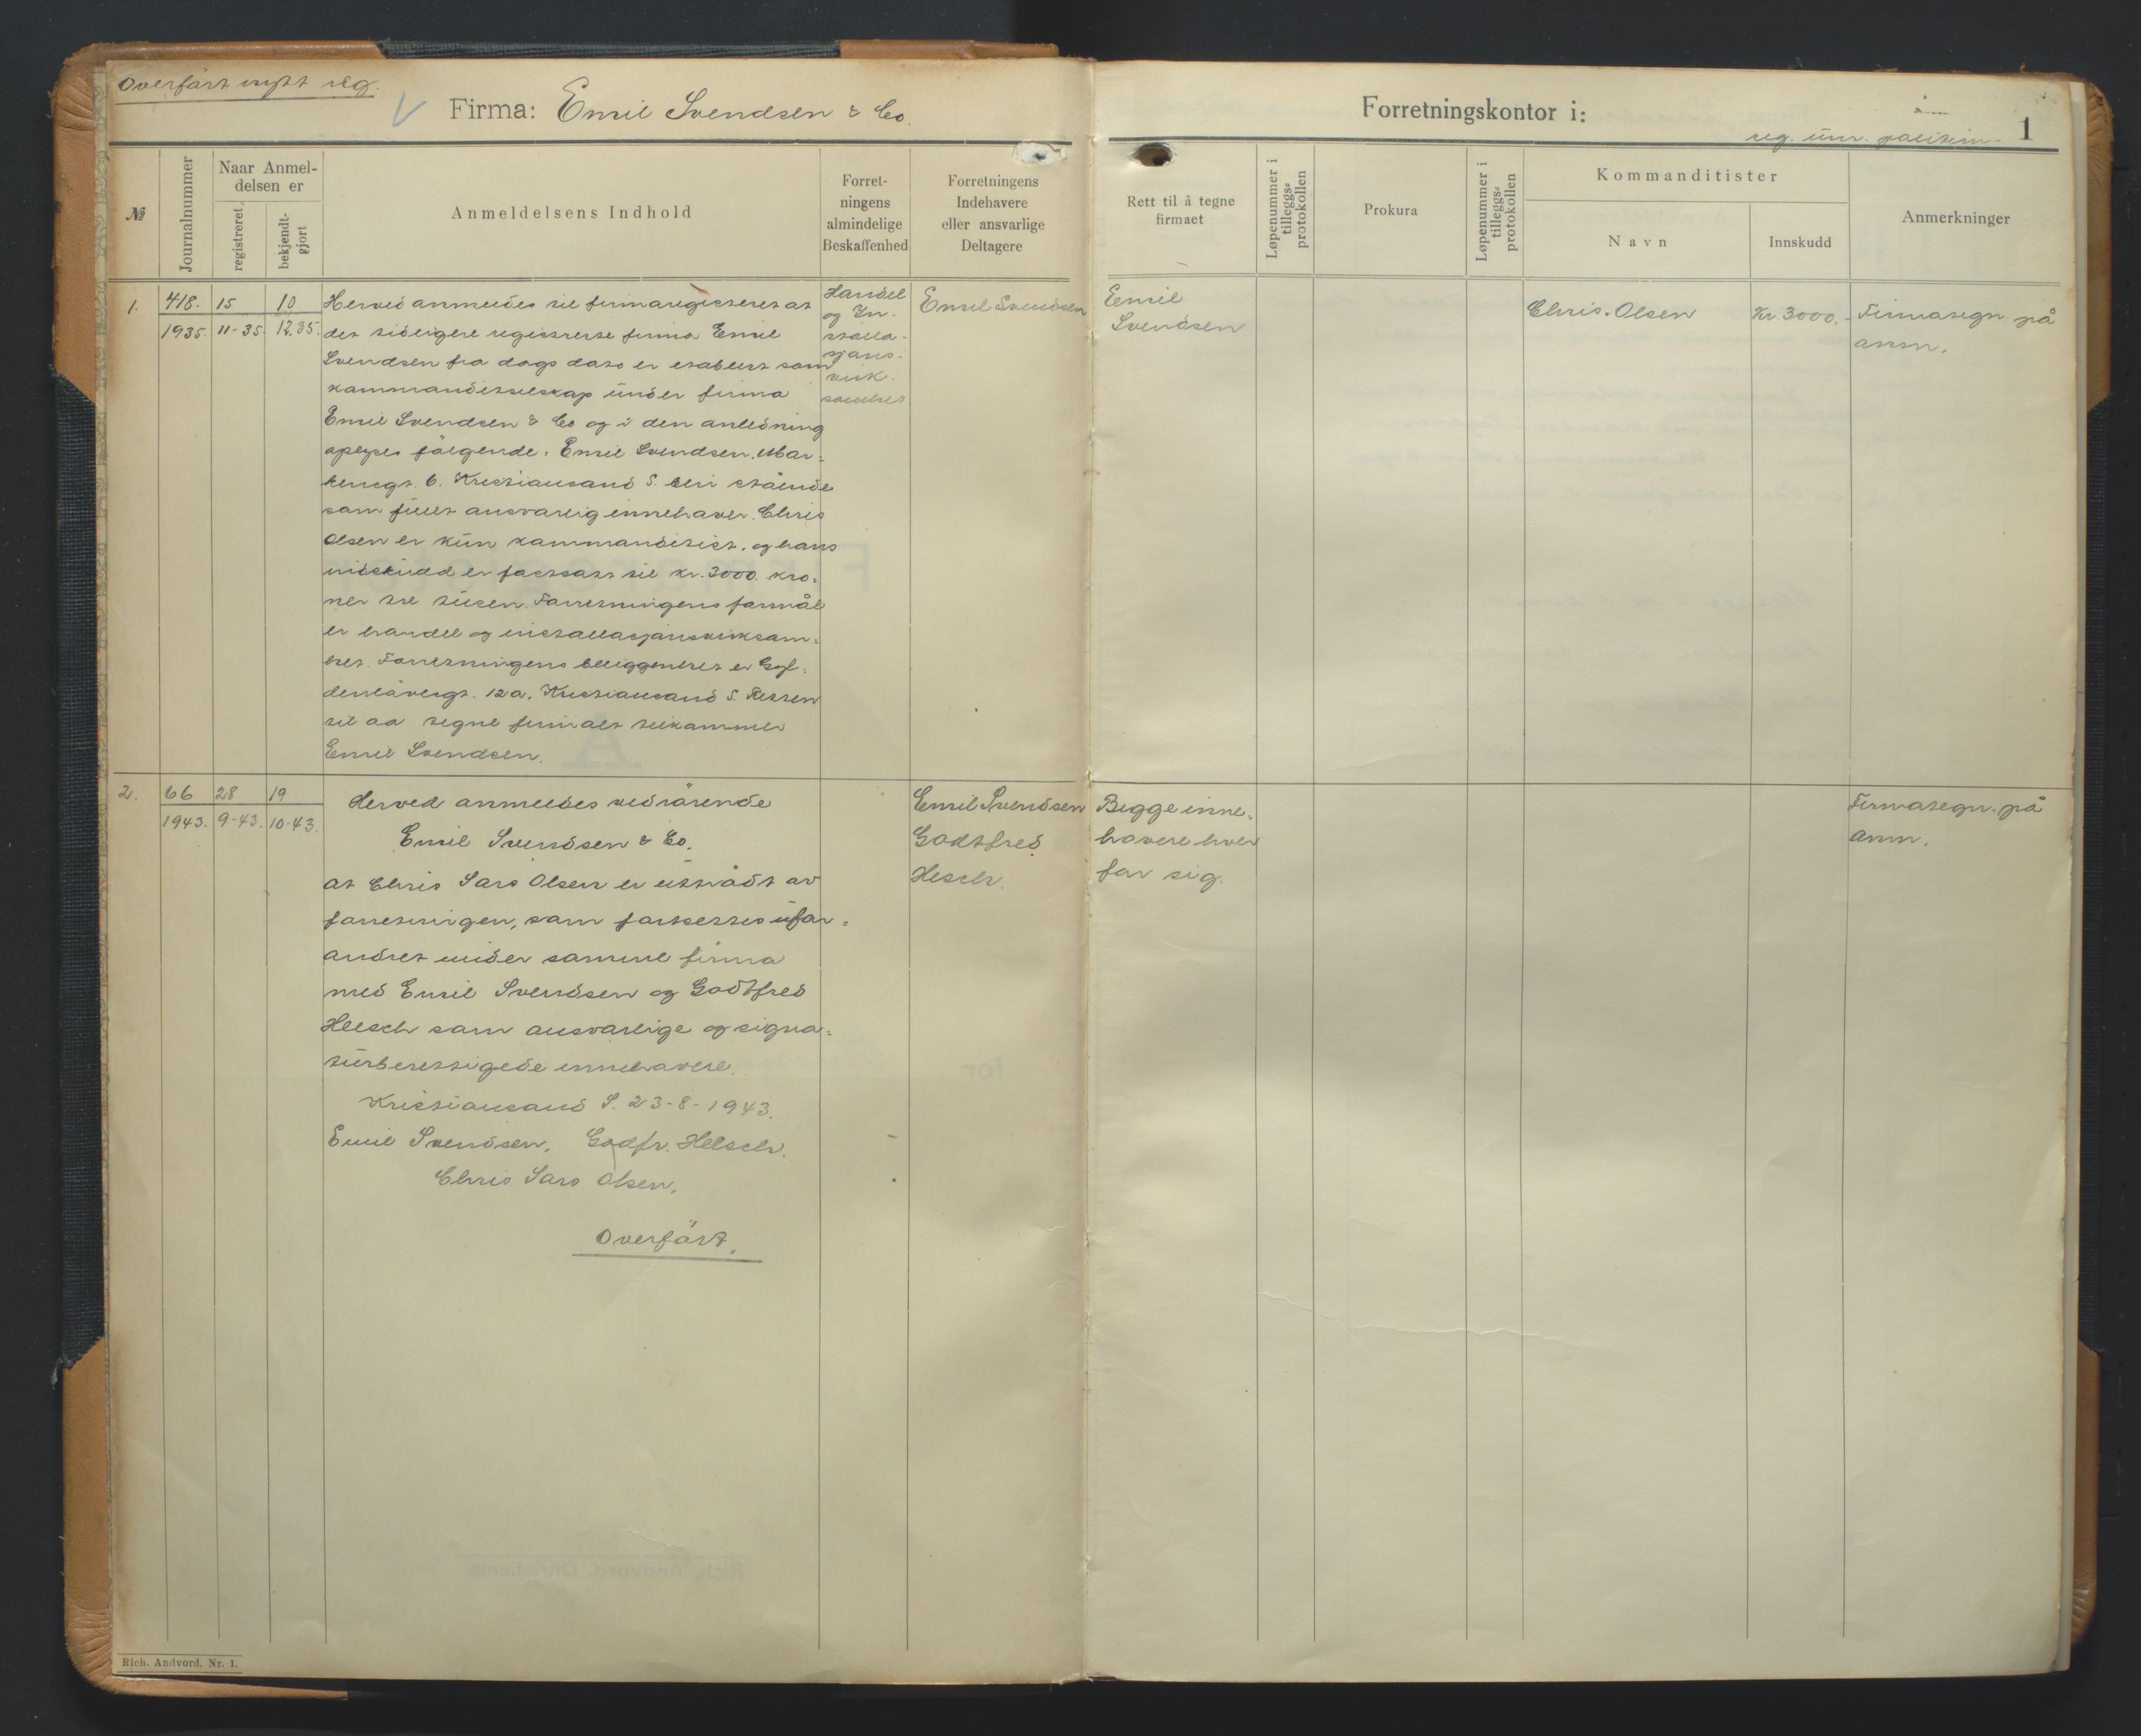 Overført nytt reg.
Firma: Emil Svendsen & Co.
№
Journalnummer
Naar Anmel-
delsen er
registreret
bekjendt-
gjort
Anmeldelsens Indhold
Forret-
ningens
almindelige
Beskaffenhed
Forretningens
Indehavere
eller ansvarlige
Deltagere
1.
418.
1935.
15
11-35
10
12.35.
Herved anmeldes til firmaregisteret at
det tidligere registrerte firma Emil
Svendsen fra dags dato er etablert som
kommanditselskap under firma
Emil Svendsen & Co og i den anledning
oplyses følgende. Emil Svendsen, Mar-
kensgt. 6. Kristiansand S. blir stående
som fullt ansvarlig innehaver. Chris
Olsen er kun kommanditist, og hans
indskudd er fastsatt til kr. 3000. kro-
ner tre tusen. Forretningens formål
er handel og installasjonsvirksom-
het. Forretningens beliggenhet er Gyl-
denløvesgt. 12a. Kristiansand S. Retten
til aa tegne firmaet tilkommer
Emil Svendsen.
Handel
og In-
stalla-
sjons-
virk-
somhet
Emil Svendsen
2.
66
1943.
28
9-43.
19
10-43.
Herved anmeldes vedrørende
Emil Svendsen & Co.
at Chris Sars Olsen er uttrådt av
forretningen, som fortsettes ufor-
andret under samme firma
med Emil Svendsen og Godtfred
Helsch som ansvarlige og signa-
turberettigede innehavere.
Kristiansand S. 23-8-1943.
Emil Svendsen, Godfr. Helsch.
Chris Sars Olsen,
Overført.
Emil Svendsen
Godtfred
Hesch.
Rich. Andvord. Nr. 1.
Forretningskontor i:
reg.
1
Rett til å tegne
firmaet
Løpenummer i
tilleggs-
protokollen
Prokura
Løpenummer i
tilleggs-
protokollen
Kommanditister
Navn
Innskudd
Anmerkninger
Emil
Svendsen
Chris. Olsen
Kr 3000.-
Firmategn. på
anm.
Begge inne-
havere hver
for sig.
Firmategn. på
anm.